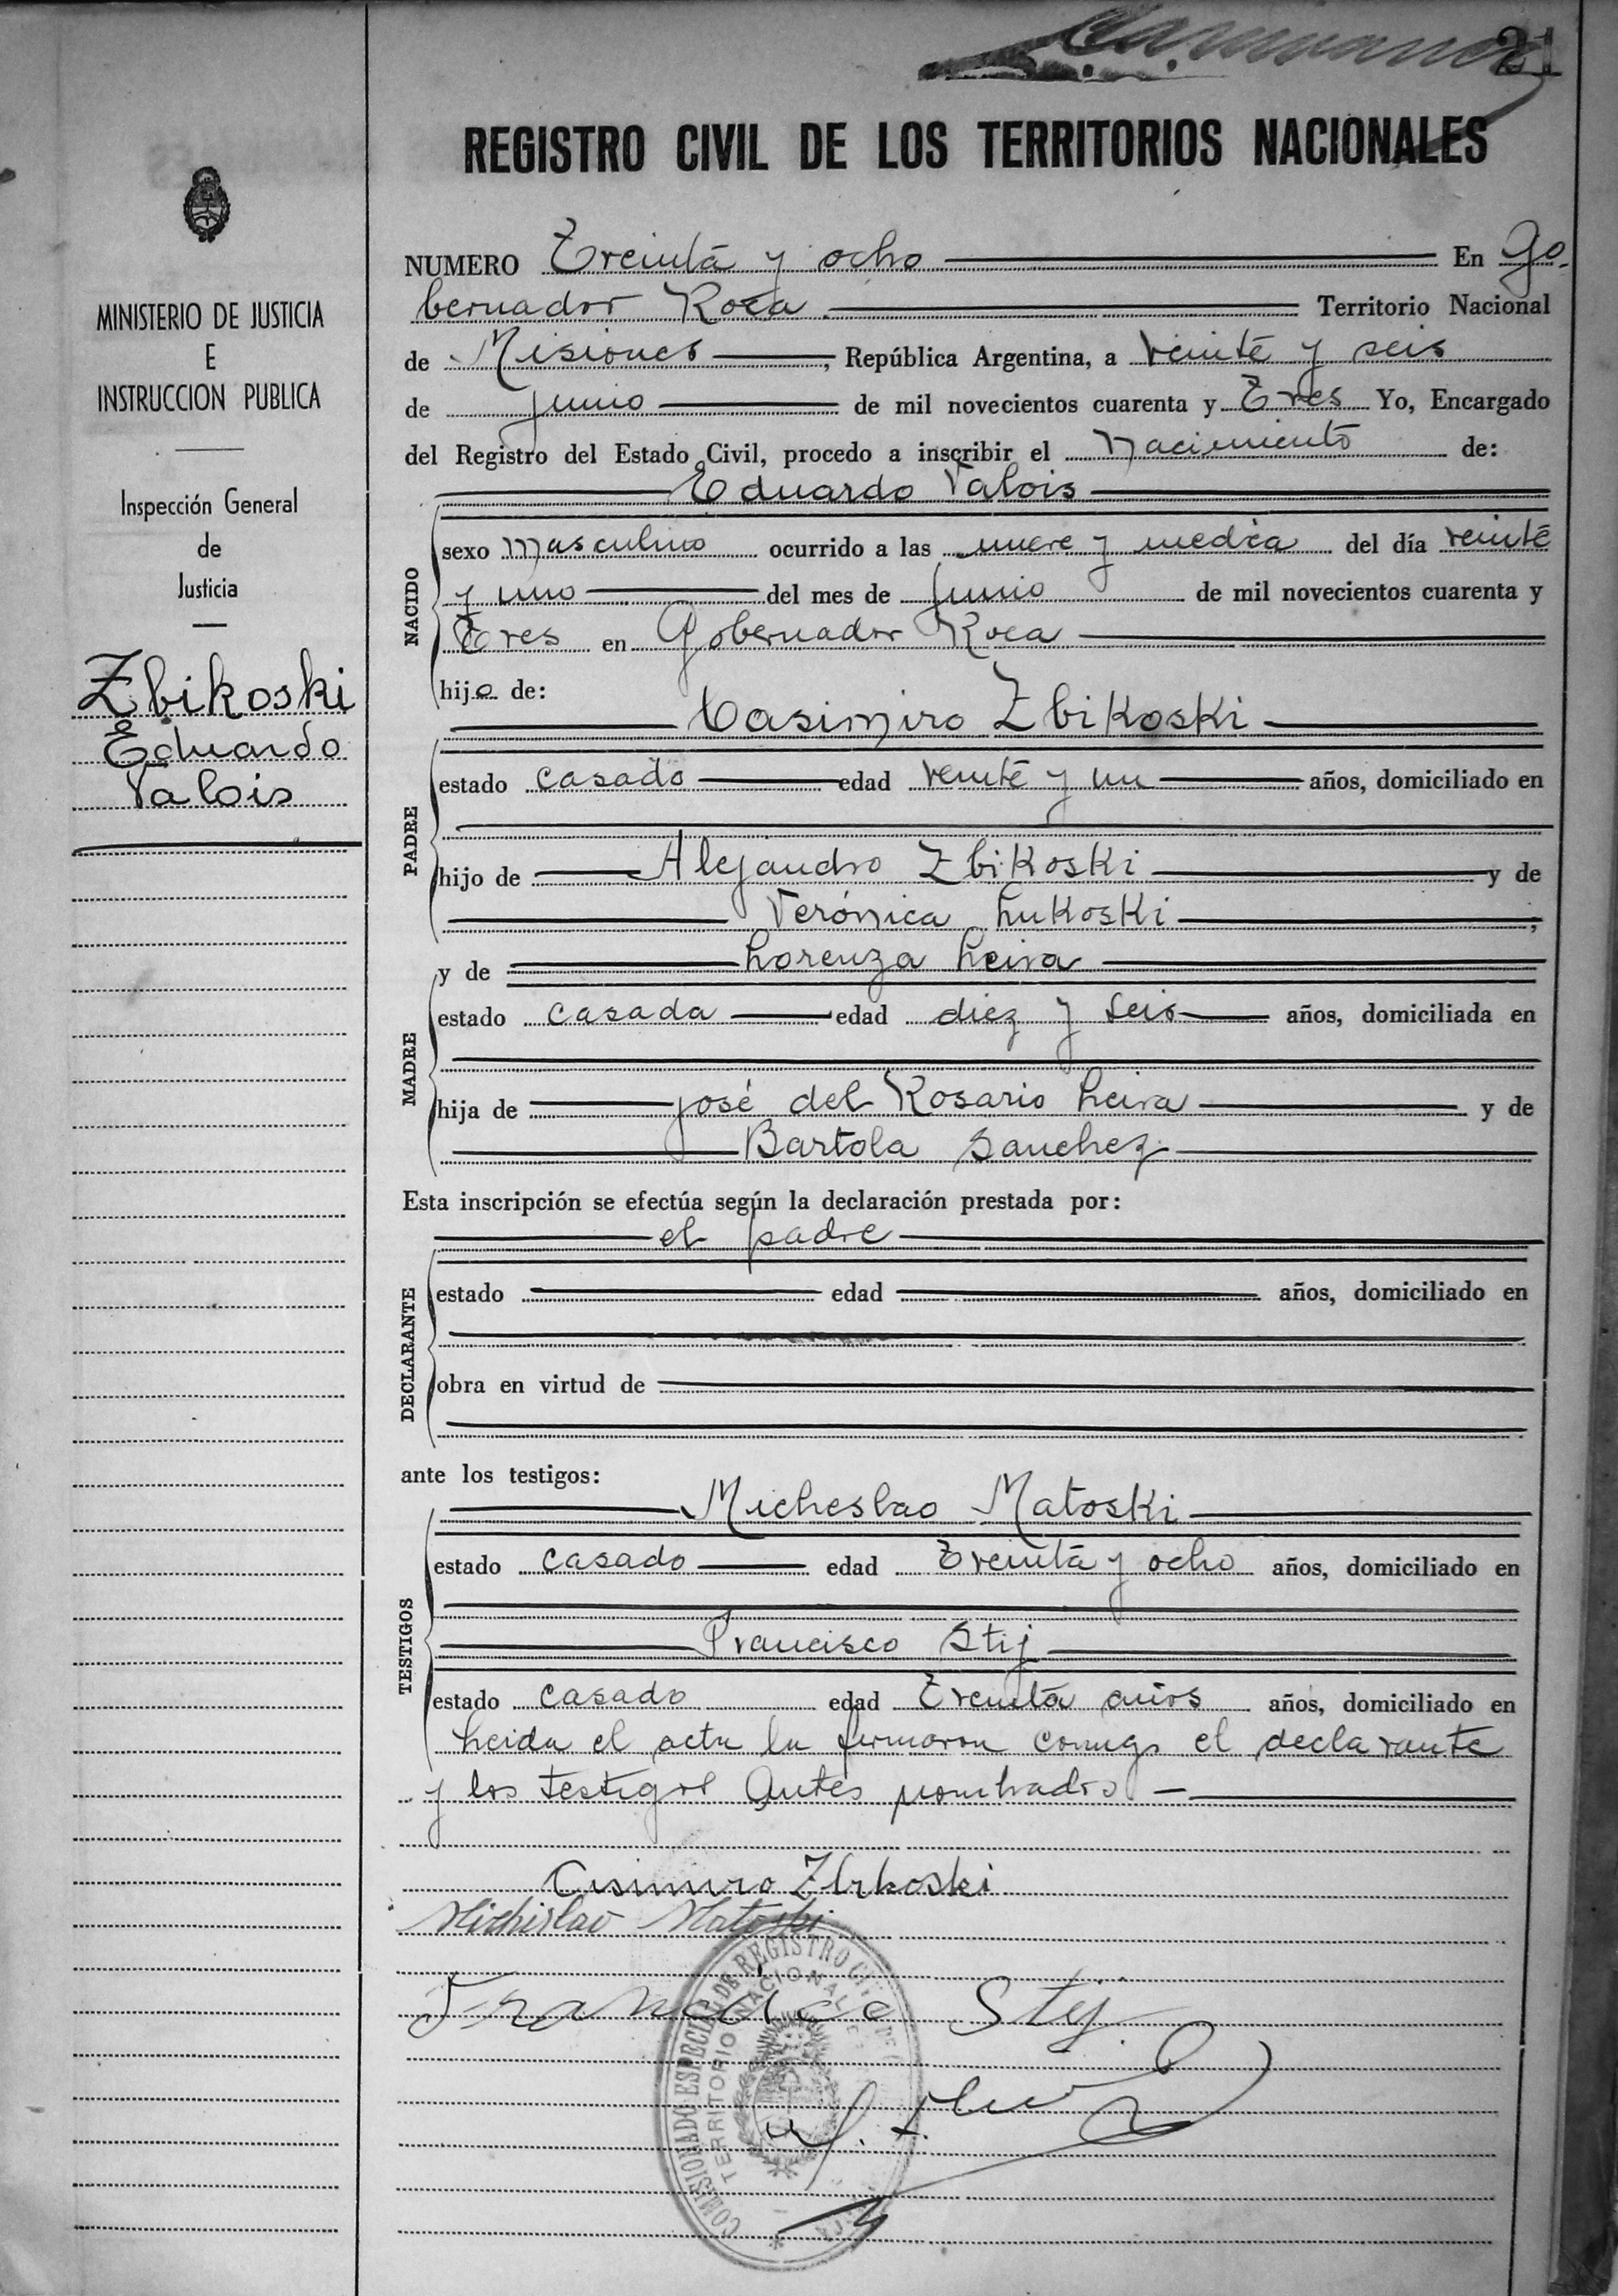 21
REGISTRO CIVIL DE LOS TERRITORIOS NACIONALES
MINISTERIO DE JUSTICIA
E
INSTRUCCION PUBLICA
Inspección General
de
Justicia
Zbikoski
Eduardo
Valois
NUMERO Treinta y ocho En Go-
bernador Roca. Territorio Nacional
de Misiones, República Argentina, a veinte y seis
de junio de mil novecientos cuarenta y Tres Yo, Encargado
del Registro del Estado Civil, procedo a inscribir el Nacimiento de:
Eduardo Valois
NACIDO
sexo masculino ocurrido a las nueve y media del día veinte
y uno del mes de junio de mil novecientos cuarenta y
Tres en Gobernador Roca
hijo de:
Casimiro Zbikoski
PADRE
estado casado edad veinte y un años, domiciliado en
hijo de Alejandro Zbikoski y de
Verónica Lukoski;
MADRE
y de Lorenza Leiva
estado casada edad diez y seis años, domiciliada en
hija de José del Rosario Leiva y de
Bartola Sanchez
Esta inscripción se efectúa según la declaración prestada por:
el padre
DECLARANTE
estado edad años, domiciliado en
obra en virtud de
ante los testigos:
Micheslao Matoski
TESTIGOS
estado casado edad Treinta y ocho años, domiciliado en
Francisco Stij
estado casado edad Treinta años años, domiciliado en
Leida el acta la firmaron conmigo el declarante
y los testigos antes nombrados —
Casimiro Zbikoski
Michislao Matoski
Francisco Stij
COMISIONADO ESPECIAL DE REGISTRO CIVIL DE
TERRITORIO NACIONAL DE